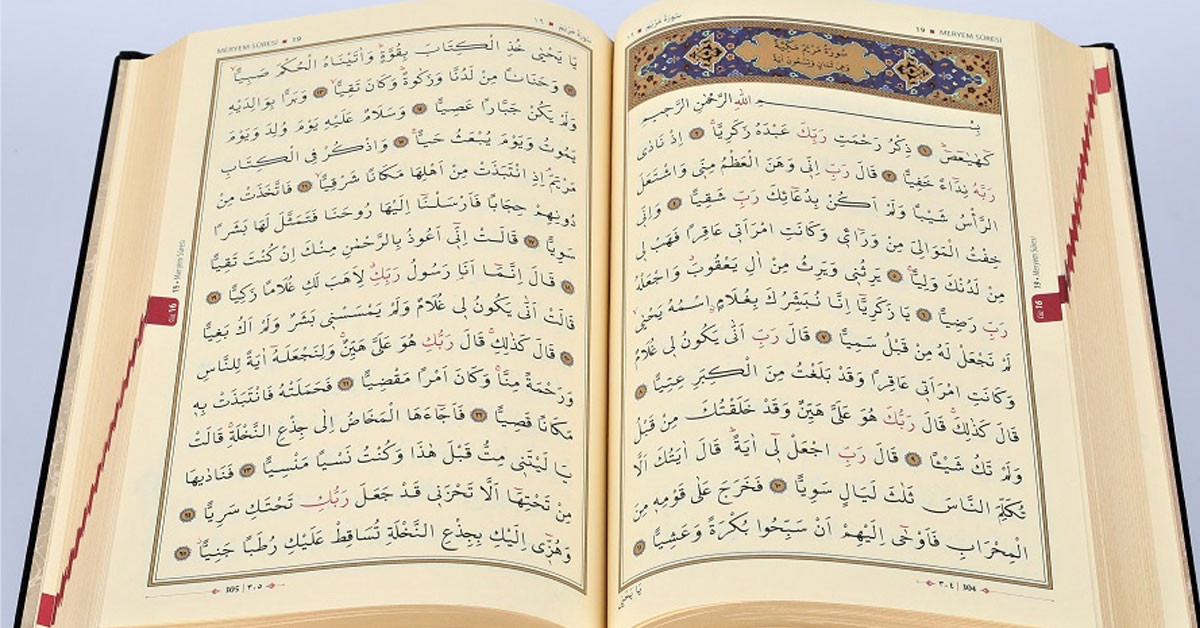 سورة مريم ١٩
19 MERYEM SÛRESİ
سُورَةُ مَرْيَمَ مَكِّيَّةٌ
وَهِيَ ثَمَانٍ وَتِسْعُونَ اٰيَةً
بِسْمِ اللّٰهِ الرَّحْمٰنِ الرَّحِيمِ
كٓهٰيٰعٓصٓ ١ ذِكْرُ رَحْمَتِ رَبِّكَ عَبْدَهُ زَكَرِيَّا ٢ اِذْ نَادٰى
رَبَّهُ نِدَٓاءً خَفِيًّا ٣ قَالَ رَبِّ اِنِّى وَهَنَ الْعَظْمُ مِنِّى وَاشْتَعَلَ
الرَّأْسُ شَيْبًا وَلَمْ اَكُنْ بِدُعَٓائِكَ رَبِّ شَقِيًّا ٤ وَاِنِّى
خِفْتُ الْمَوَالِىَ مِنْ وَرَٓاءِى وَكَانَتِ امْرَاَتِى عَاقِرًا فَهَبْ لِى
مِنْ لَدُنْكَ وَلِيًّا ٥ يَرِثُنِى وَيَرِثُ مِنْ اٰلِ يَعْقُوبَ وَاجْعَلْهُ
رَبِّ رَضِيًّا ٦ يَا زَكَرِيَّٓا اِنَّا نُبَشِّرُكَ بِغُلَامٍ اسْمُهُ يَحْيٰى
لَمْ نَجْعَلْ لَهُ مِنْ قَبْلُ سَمِيًّا ٧ قَالَ رَبِّ اَنّٰى يَكُونُ لِى غُلَامٌ
وَكَانَتِ امْرَاَتِى عَاقِرًا وَقَدْ بَلَغْتُ مِنَ الْكِبَرِ عِتِيًّا ٨
قَالَ كَذٰلِكَ قَالَ رَبُّكَ هُوَ عَلَىَّ هَيِّنٌ وَقَدْ خَلَقْتُكَ مِنْ قَبْلُ
وَلَمْ تَكُ شَيْـًٔا ٩ قَالَ رَبِّ اجْعَلْ لِٓى اٰيَةً قَالَ اٰيَتُكَ اَلَّا
تُكَلِّمَ النَّاسَ ثَلٰثَ لَيَالٍ سَوِيًّا ١٠ فَخَرَجَ عَلٰى قَوْمِهِ مِنَ
الْمِحْرَابِ فَاَوْحٰٓى اِلَيْهِمْ اَنْ سَبِّحُوا بُكْرَةً وَعَشِيًّا ١١
يَا يَحْيٰى
٣٠٤ | 304
Cüz 16
19 • Meryem Sûresi
سورة مريم ١٩
MERYEM SÛRESİ 19
يَا يَحْيٰى خُذِ الْكِتَابَ بِقُوَّةٍ وَاٰتَيْنَاهُ الْحُكْمَ صَبِيًّا
١٢ وَحَنَانًا مِنْ لَدُنَّا وَزَكٰوةً وَكَانَ تَقِيًّا ١٣ وَبَرًّا بِوَالِدَيْهِ
وَلَمْ يَكُنْ جَبَّارًا عَصِيًّا ١٤ وَسَلَامٌ عَلَيْهِ يَوْمَ وُلِدَ وَيَوْمَ
يَمُوتُ وَيَوْمَ يُبْعَثُ حَيًّا ١٥ وَاذْكُرْ فِى الْكِتَابِ
مَرْيَمَ اِذِ انْتَبَذَتْ مِنْ اَهْلِهَا مَكَانًا شَرْقِيًّا ١٦ فَاتَّخَذَتْ مِنْ
دُونِهِمْ حِجَابًا فَاَرْسَلْنَٓا اِلَيْهَا رُوحَنَا فَتَمَثَّلَ لَهَا بَشَرًا
سَوِيًّا ١٧ قَالَتْ اِنِّٓى اَعُوذُ بِالرَّحْمٰنِ مِنْكَ اِنْ كُنْتَ تَقِيًّا
١٨ قَالَ اِنَّمَٓا اَنَا رَسُولُ رَبِّكِ لِاَهَبَ لَكِ غُلَامًا زَكِيًّا ١٩
قَالَتْ اَنّٰى يَكُونُ لِى غُلَامٌ وَلَمْ يَمْسَسْنِى بَشَرٌ وَلَمْ اَكُ بَغِيًّا
٢٠ قَالَ كَذٰلِكِ قَالَ رَبُّكِ هُوَ عَلَىَّ هَيِّنٌ وَلِنَجْعَلَهُٓ اٰيَةً لِلنَّاسِ
وَرَحْمَةً مِنَّا وَكَانَ اَمْرًا مَقْضِيًّا ٢١ فَحَمَلَتْهُ فَانْتَبَذَتْ بِهِ
مَكَانًا قَصِيًّا ٢٢ فَاَجَٓاءَهَا الْمَخَاضُ اِلٰى جِذْعِ النَّخْلَةِ قَالَتْ
يَا لَيْتَنِى مِتُّ قَبْلَ هٰذَا وَكُنْتُ نَسْيًا مَنْسِيًّا ٢٣ فَنَادٰيهَا
مِنْ تَحْتِهَٓا اَلَّا تَحْزَنِى قَدْ جَعَلَ رَبُّكِ تَحْتَكِ سَرِيًّا ٢٤
وَهُزِّٓى اِلَيْكِ بِجِذْعِ النَّخْلَةِ تُسَاقِطْ عَلَيْكِ رُطَبًا جَنِيًّا ٢٥
305 | ٣٠٥
Cüz 16
19 • Meryem Sûresi